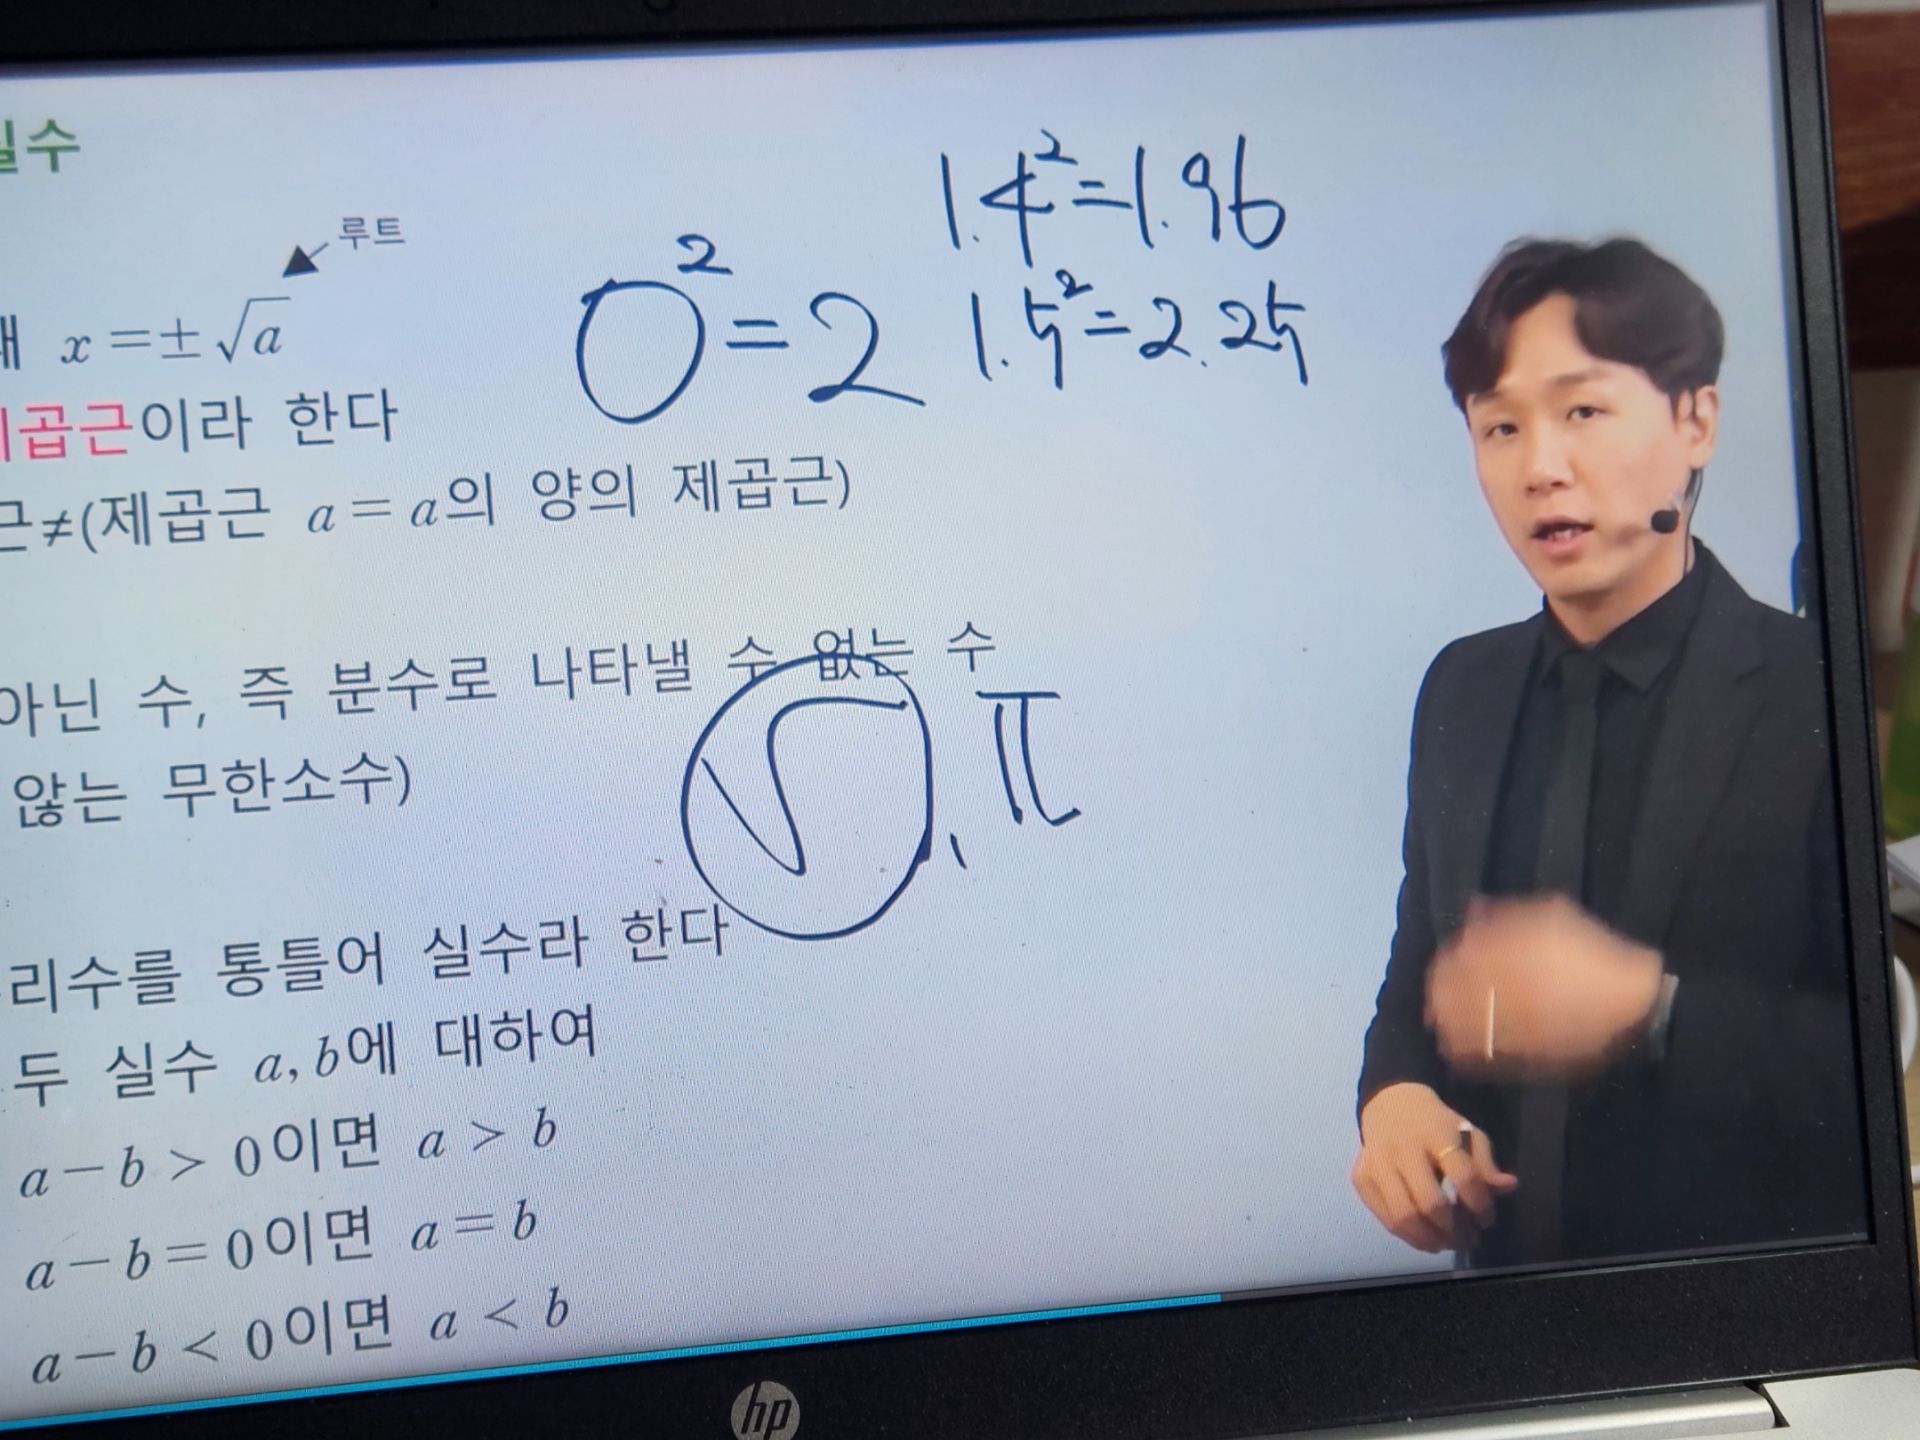 실수
루트
x=±√a
제곱근이라 한다
근≠(제곱근 a=a의 양의 제곱근)
아닌 수, 즉 분수로 나타낼 수 없는 수
않는 무한소수)
리수를 통틀어 실수라 한다
두 실수 a, b에 대하여
a-b > 0이면 a > b
a-b=0이면 a=b
a-b < 0이면 a < b
○²=2
1.4²=1.96
1.5²=2.25
√, π
hp